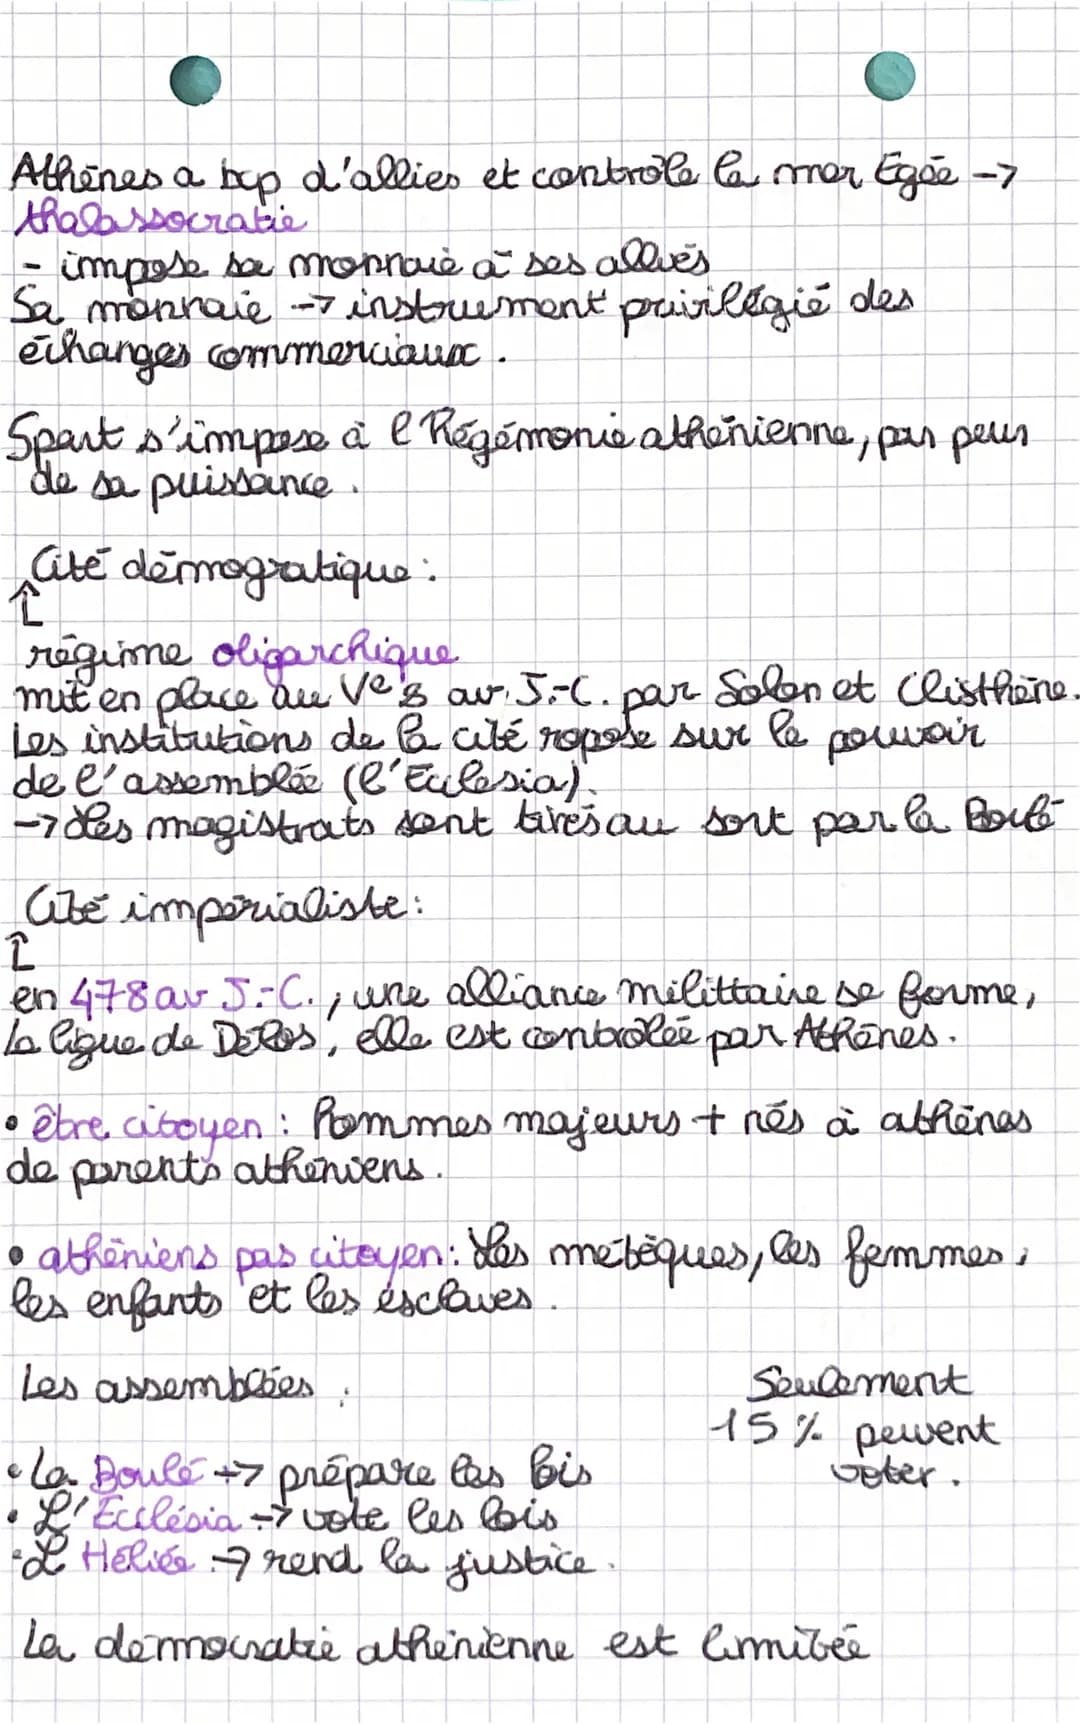 Athènes a bcp d'allies et contrôle la mer Egée →
thalassocratie
- impose sa monnaie à ses alliés
Sa monnaie → instrument privilégié des
échanges commerciaux.
Spart s'impose à l'hégémonie athénienne, par peur
de sa puissance.
Cité démogratique :
↑
régime oligarchique
mit en place au Ve s av. J.-C. par Solon et Clisthène.
Les institutions de la cité repose sur le pouvoir
de l'assemblée (l'Ecclesia).
→ Les magistrats sont tirés au sort par la Boulé
Cité impérialiste :
↑
en 478 av J.-C., une alliance milittaire se forme,
la ligue de Délos, elle est contrôlée par Athènes.
• être citoyen : hommes majeurs + nés à athènes
de parents athéniens.
• athéniens pas citoyen : Les métèques, les femmes,
les enfants et les esclaves.
Les assemblées :
Seulement
15 % peuvent
voter.
• La Boulé → prépare les lois
• L'Ecclésia → vote les lois
• L'Héliée → rend la justice.
La démocratie athénienne est limitée